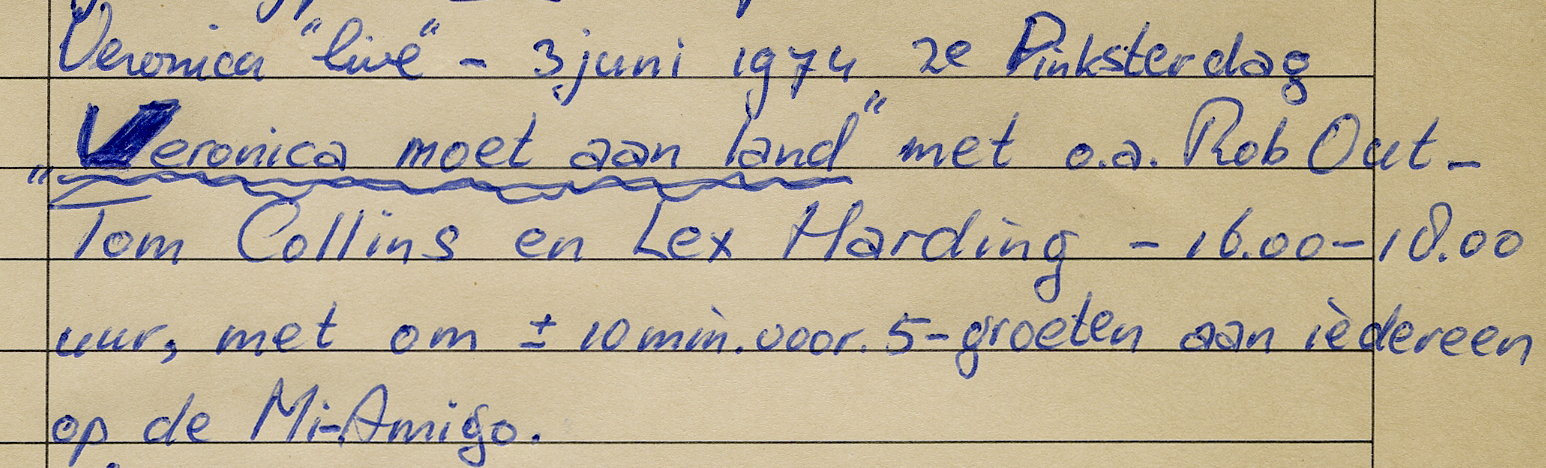 Veronica "live" - 3 juni 1974 2e Pinksterdag
"Veronica moet aan land" met o.a. Rob Out -
Tom Collins en Lex Harding - 16.00-18.00
uur, met om ± 10 min. voor. 5-groeten aan iedereen
op de Mi-Amigo.